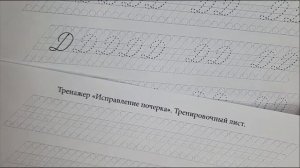 Д Д Д Д Д Д Д Д Д
Тренажер «Исправление почерка». Тренировочный лист.